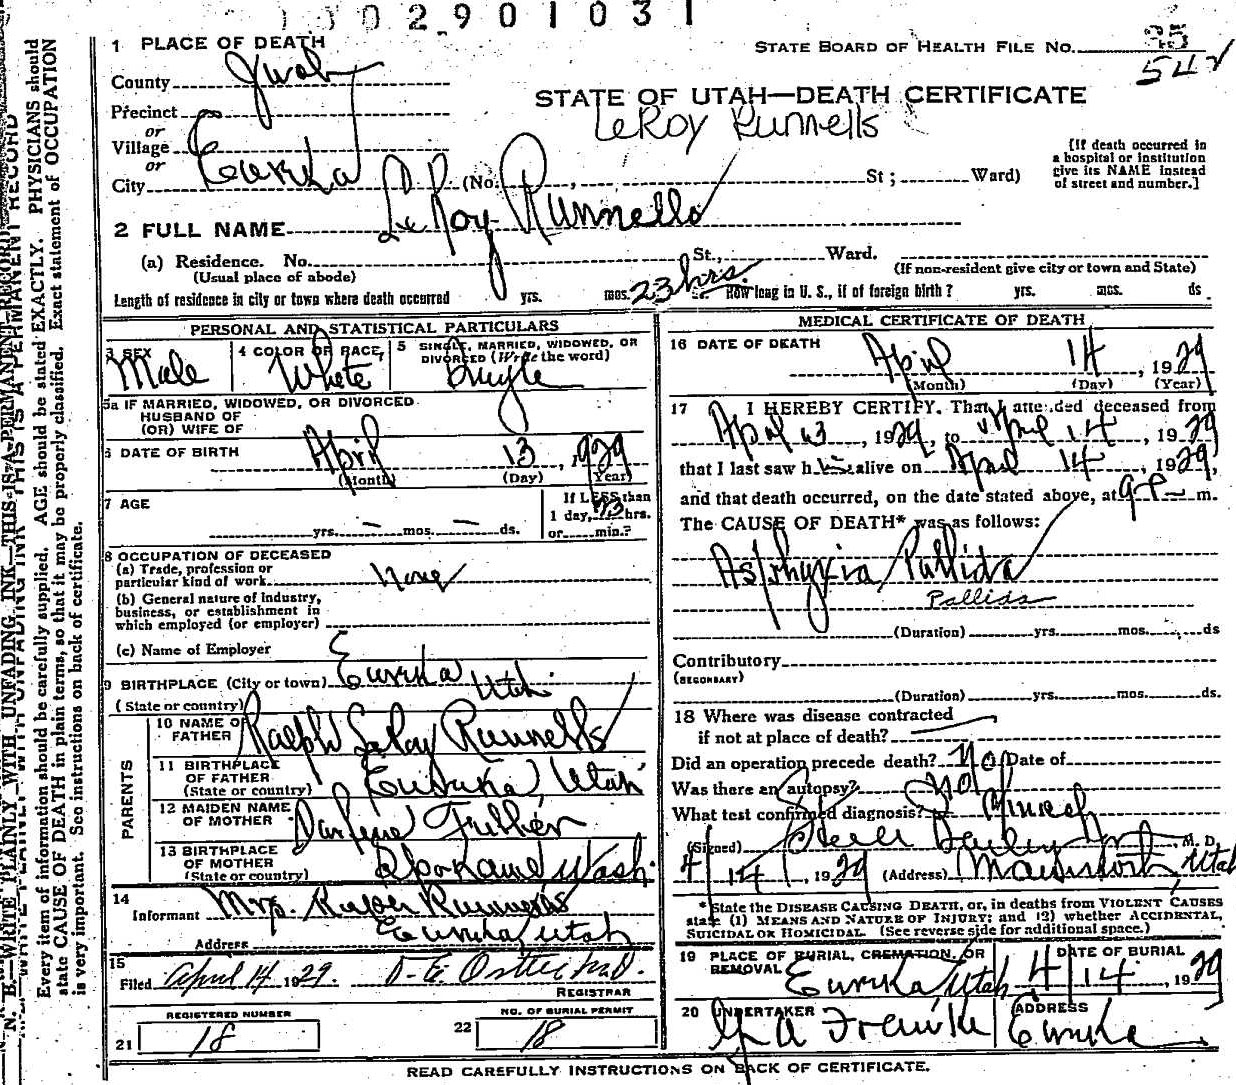 002901031
1 PLACE OF DEATH
STATE BOARD OF HEALTH FILE No. 35
542
County Juab
STATE OF UTAH—DEATH CERTIFICATE
Precinct
LeRoy Runnells
or
Village
or
City Eureka (No. St; Ward)
[If death occurred in
a hospital or institution
give its NAME instead
of street and number.]
2 FULL NAME LeRoy Runnells
(a) Residence. No. St., Ward.
(Usual place of abode)
(If non-resident give city or town and State)
Length of residence in city or town where death occurred yrs. mos. 23 hrs. How long in U. S., if of foreign birth? yrs. mos. ds.
PERSONAL AND STATISTICAL PARTICULARS
3 SEX
Male
4 COLOR OR RACE,
White
5 SINGLE, MARRIED, WIDOWED, OR
DIVORCED (Write the word)
Single
5a IF MARRIED, WIDOWED, OR DIVORCED
HUSBAND OF
(OR) WIFE OF
6 DATE OF BIRTH
April 13, 1929
(Month) (Day) (Year)
7 AGE
yrs. — mos. — ds.
If LESS than
1 day, 23 hrs.
or min.?
8 OCCUPATION OF DECEASED
(a) Trade, profession or
particular kind of work none
(b) General nature of industry,
business, or establishment in
which employed (or employer)
(c) Name of Employer
9 BIRTHPLACE (City or town) Eureka Utah
(State or country)
PARENTS
10 NAME OF
FATHER Ralph LeRoy Runnells
11 BIRTHPLACE
OF FATHER
(State or country) Eureka, Utah
12 MAIDEN NAME
OF MOTHER Darlene
13 BIRTHPLACE
OF MOTHER
(State or country) Spokane Wash.
14
Informant Mrs. Ralph Runnells
Address Eureka, Utah
15
Filed April 14 1929. M.D.
REGISTRAR
REGISTERED NUMBER
21 18
NO. OF BURIAL PERMIT
22 18
MEDICAL CERTIFICATE OF DEATH
16 DATE OF DEATH
April 14, 1929
(Month) (Day) (Year)
17 I HEREBY CERTIFY, That I attended deceased from
April 13, 1929, to April 14, 1929
that I last saw him alive on April 14, 1929,
and that death occurred, on the date stated above, at 9 P m.
The CAUSE OF DEATH* was as follows:
Asphyxia Pallida
Pallida
(Duration) yrs. mos. ds
Contributory
(SECONDARY)
(Duration) yrs. mos. ds.
18 Where was disease contracted
if not at place of death?
Did an operation precede death? no Date of
Was there an autopsy? no
What test confirmed diagnosis?
(Signed) Steele Bailey M. D.
4/14, 1929 (Address) Mammoth, Utah
* State the DISEASE CAUSING DEATH, or, in deaths from VIOLENT CAUSES
state (1) MEANS AND NATURE OF INJURY; and (2) whether ACCIDENTAL,
SUICIDAL OR HOMICIDAL. (See reverse side for additional space.)
19 PLACE OF BURIAL, CREMATION, OR
REMOVAL Eureka, Utah
DATE OF BURIAL
4/14, 1929
20 UNDERTAKER
ADDRESS
Eureka
READ CAREFULLY INSTRUCTIONS ON BACK OF CERTIFICATE.
N. B.—WRITE PLAINLY WITH UNFADING INK—THIS IS A PERMANENT RECORD
Every item of information should be carefully supplied. AGE should be stated EXACTLY. PHYSICIANS should
state CAUSE OF DEATH in plain terms, so that it may be properly classified. Exact statement of OCCUPATION
is very important. See instructions on back of certificate.